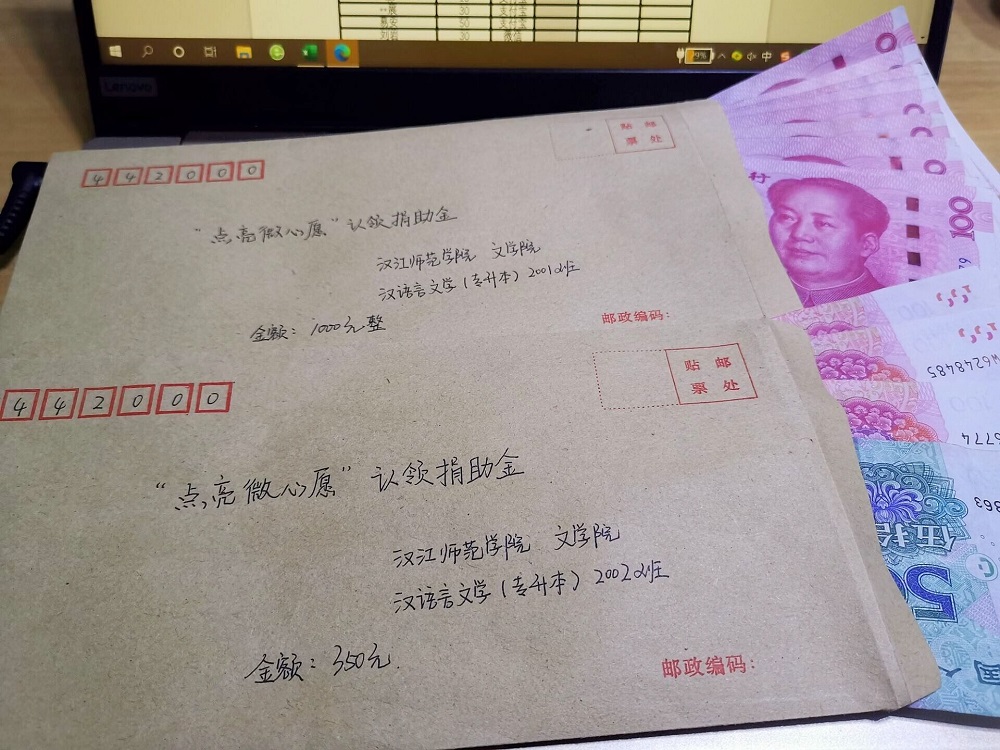 易安 50 支付宝
刘若 30 微信
99%
中
Lenovo
442000
贴 邮
票 处
“点亮微心愿”认领捐助金
汉江师范学院 文学院
汉语言文学(专升本)2001班
金额:1000元整
邮政编码:
442000
贴 邮
票 处
“点亮微心愿”认领捐助金
汉江师范学院 文学院
汉语言文学(专升本)2002班
金额:350元.
邮政编码:
行
100
W6248485
6774
363
伍拾
50
国人